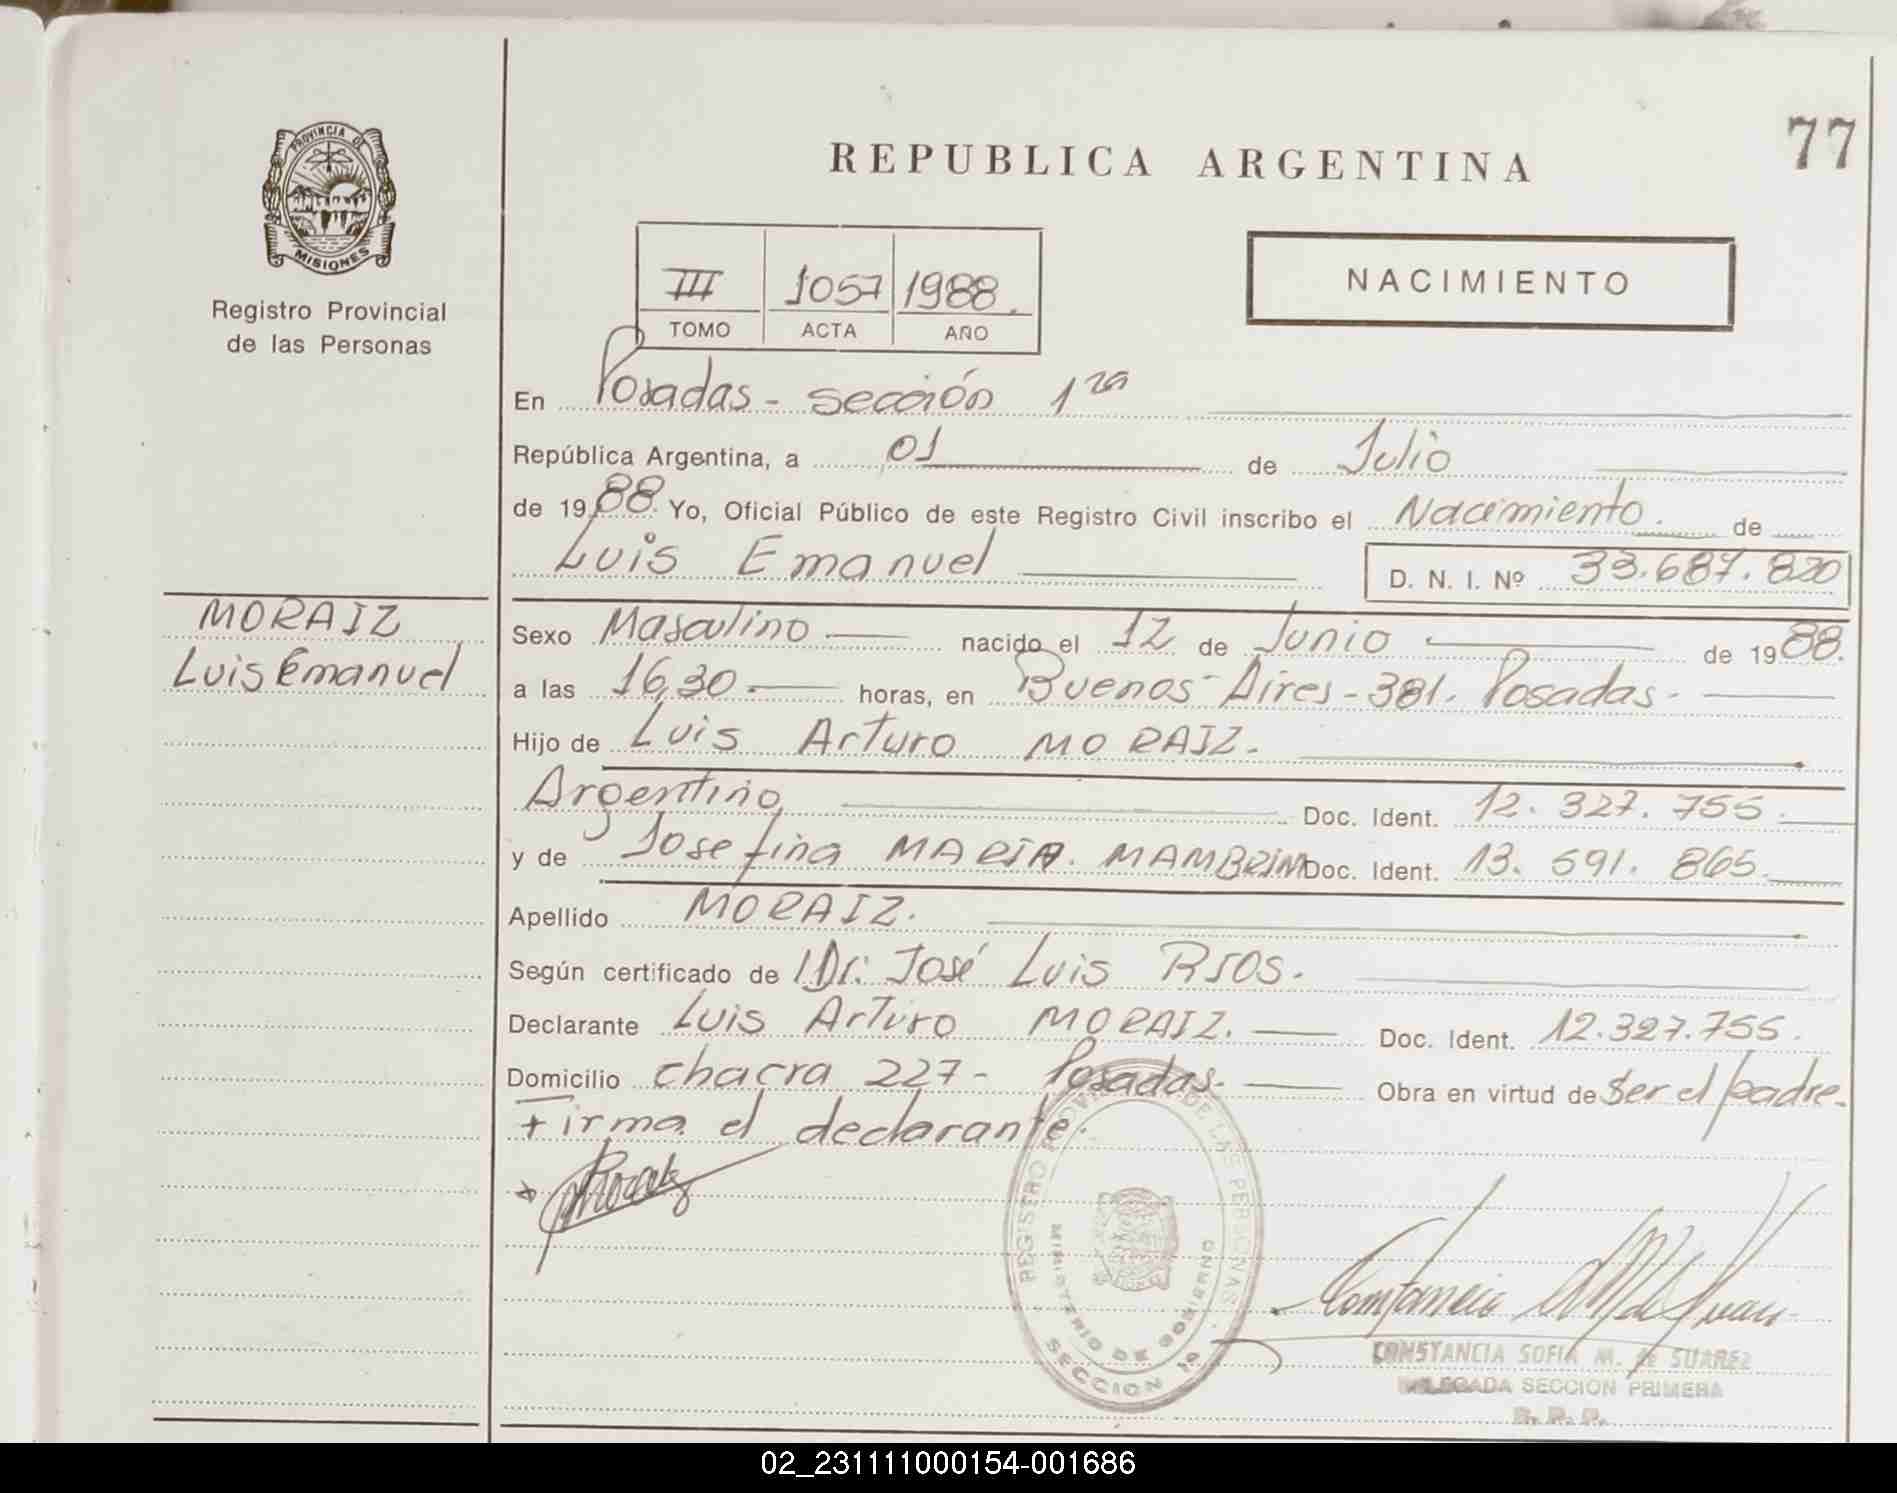 77
PROVINCIA DE
MISIONES
Registro Provincial
de las Personas
REPUBLICA ARGENTINA
III 1057 1988.
TOMO ACTA AÑO
NACIMIENTO
En Posadas - sección 1ra
República Argentina, a 01 de Julio
de 1988. Yo, Oficial Público de este Registro Civil inscribo el Nacimiento. de
Luis Emanuel D. N. I. Nº 33.687.820
MORAIZ
Luis Emanuel
Sexo Masculino nacido el 12 de Junio de 1988.
a las 16,30 horas, en Buenos Aires - 381. Posadas -
Hijo de Luis Arturo MORAIZ.
Argentino Doc. Ident. 12. 327. 755.
y de Josefina MARIA. MAMBRIN Doc. Ident. 13. 591. 865.
Apellido MORAIZ.
Según certificado de Dr: José Luis RIOS.
Declarante Luis Arturo MORAIZ. Doc. Ident. 12.327.755.
Domicilio chacra 227 - Posadas. Obra en virtud de Ser el padre.
Firma el declarante.
Moraiz
REGISTRO PROVINCIAL DE LAS PERSONAS
MINISTERIO DE GOBIERNO
SECCION 1a
Constancia M de Suarez
CONSTANCIA SOFIA M. de SUAREZ
DELEGADA SECCION PRIMERA
R. P. P.
02_231111000154-001686